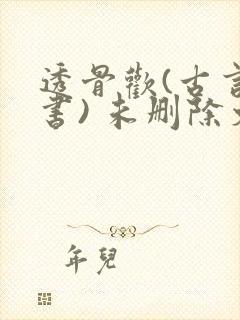 透骨歡(古言
書)未刪除
年兒